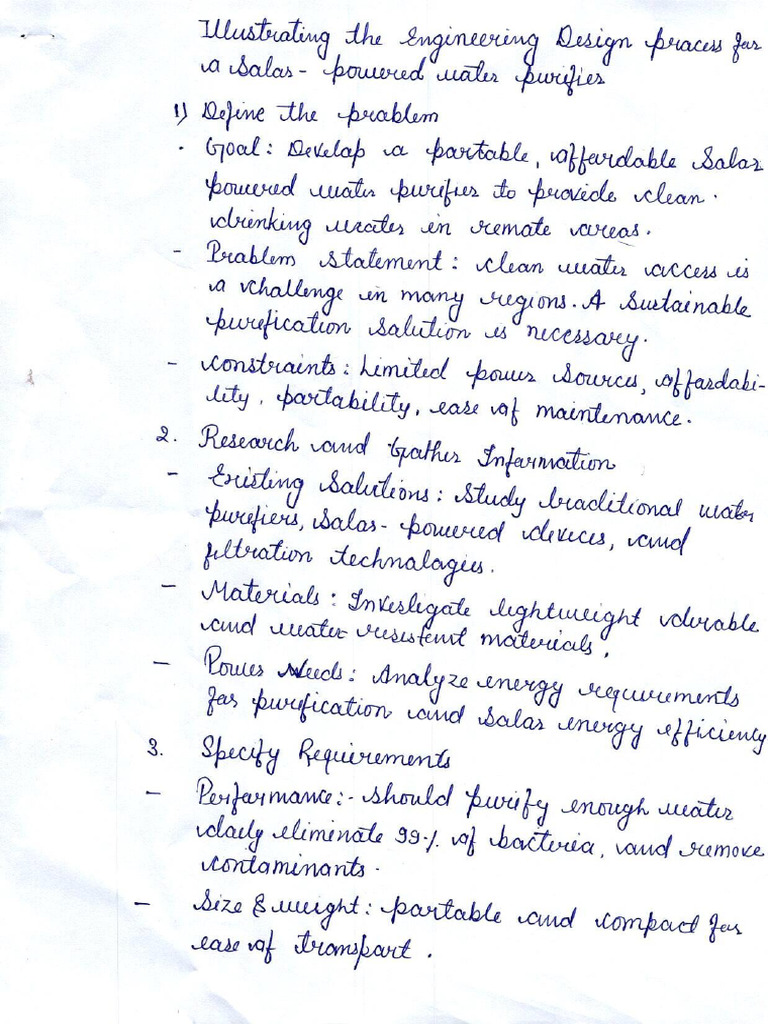 Illustrating the Engineering Design process for
a Solar-powered water purifier
1) Define the problem
· Goal: Develop a portable, affordable Solar
powered water purifier to provide clean
drinking water in remote areas.
- Problem statement: clean water access is
a challenge in many regions. A Sustainable
purification solution is necessary.
- constraints: Limited power sources, affordabi-
lity, portability, ease of maintenance.
2. Research and Gather Information
- Existing Solutions: Study traditional water
purifiers, Solar-powered devices, and
filtration technologies.
- Materials: Investigate lightweight durable
and water-resistent materials.
- Power Needs: Analyze energy requirements
for purification and solar energy efficiency
3. Specify Requirements
- Performance:- should purify enough water
daily eliminate 99% of bacteria, and remove
contaminants.
- Size & weight: portable and compact for
ease of transport.